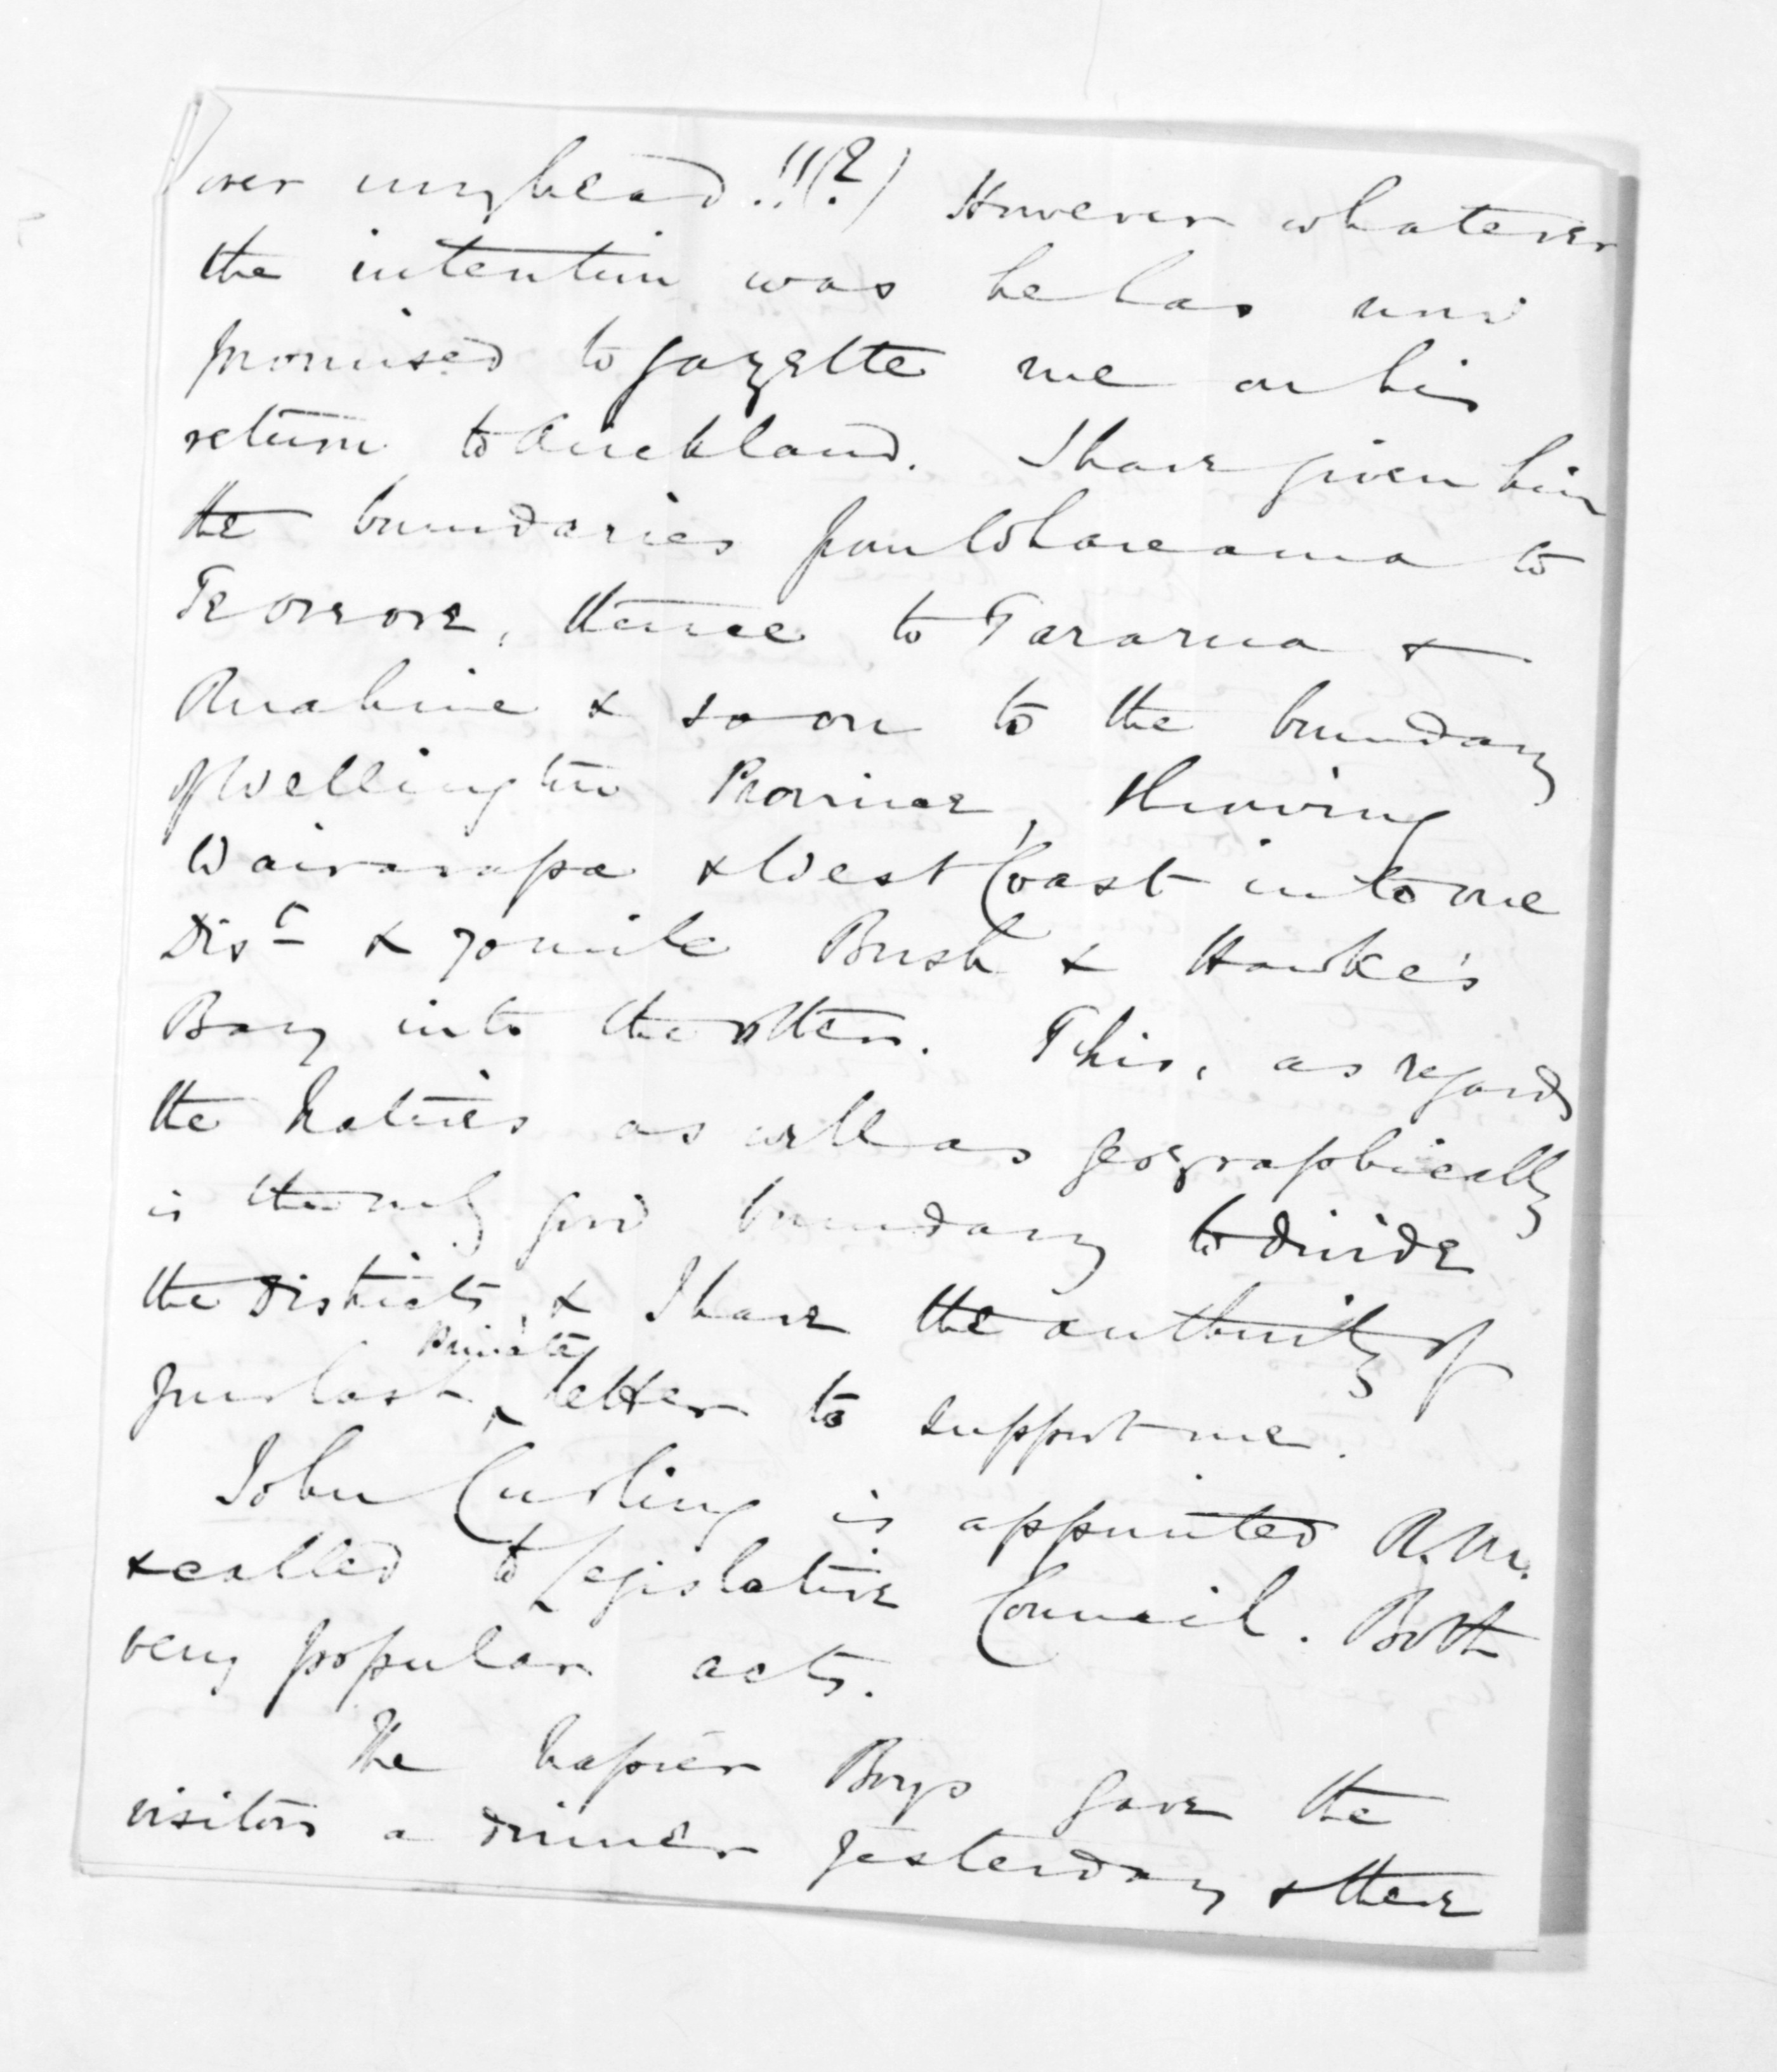 over my head!!!(?) However whatever
the intention was he has now
promised to gazette me on his
return to Auckland. I have given him
the boundaries from Whareama to
Te Oreore, thence to Tararua &
Ruahine & so on to the boundary
of Wellington Province, throwing
Wairarapa & West Coast into one
Dist & 70 mile Bush & Hawke's
Bay into the other. This, as regards
the Natives as well as geographically
is the only good boundary to divide
the Districts, & I have the authority of
your last private letter to support me.
John Curling is appointed R.M.
& called to Legislative Council. Both
very popular acts.
The Napier Boys gave the
visitors a dinner yesterday & there